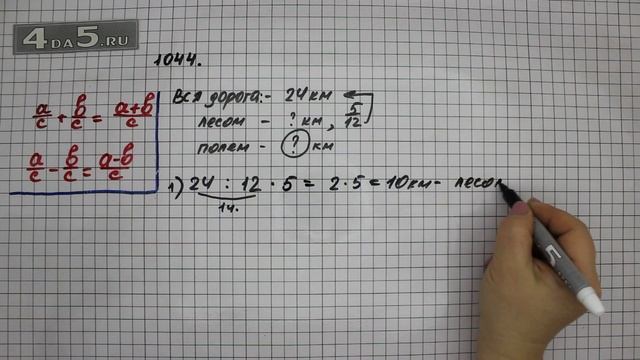 4DA5.RU
1044.
a/c + b/c = a+b/c
a/c - b/c = a-b/c
Вся дорога:- 24 км
лесом - ? км, 5/12
полем - ? км
1) 24 : 12 · 5 = 2 · 5 = 10 км - лесом
1ч.